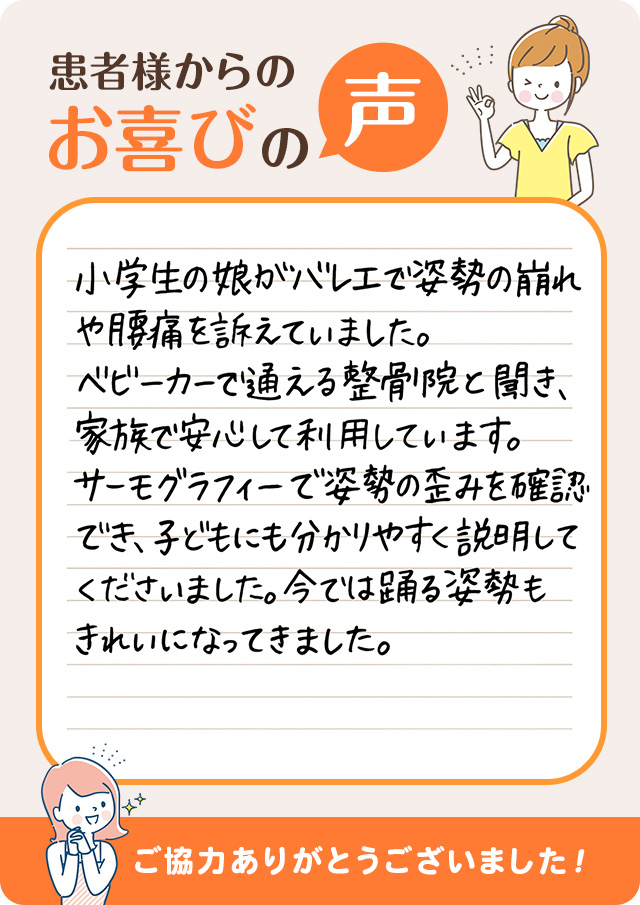 患者様からの
お喜びの声
小学生の娘がバレエで姿勢の崩れ
や腰痛を訴えていました。
ベビーカーで通える整骨院と聞き、
家族で安心して利用しています。
サーモグラフィーで姿勢の歪みを確認
でき、子どもにも分かりやすく説明して
くださいました。今では踊る姿勢も
きれいになってきました。
ご協力ありがとうございました!